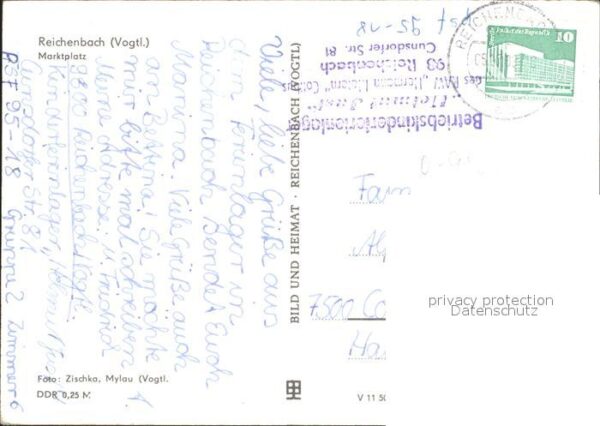 Reichenbach (Vogtl.)
Marktplatz
Viele, liebe Grüße aus
dem Ferienlager in
Reichenbach sendet Euch
Marina. Viele Grüße auch
an Bettina! Sie möchte
mir bitte mal schreiben
Meine Adresse: M.
9800 Reichenbach/Vogtl.
Kinderferienlager "Helmut Just"
Cunsdorfer Str. 81
PSF 95-18 Gruppe 2 Zimmer 6
Foto: Zischka, Mylau (Vogtl.
DDR 0,25 M
BILD UND HEIMAT · REICHENBACH (VOGTL)
V 11 50
PSF 95-18
Betriebskinderferienlager
"Helmut Just"
des RAW "Hermann Cottbus
93 Reichenbach
Cunsdorfer Str. 81
REICHENBACH
10
Fam
7500 Co
privacy protection
Datenschutz